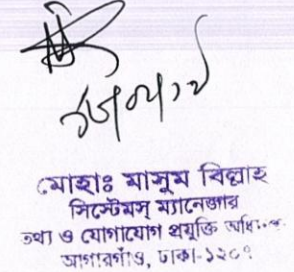 মোহাঃ মাসুম বিল্লাহ
সিস্টেমস্ ম্যানেজার
তথ্য ও যোগাযোগ প্রযুক্তি অধি
আগারগাঁও, ঢাকা-১২০৭